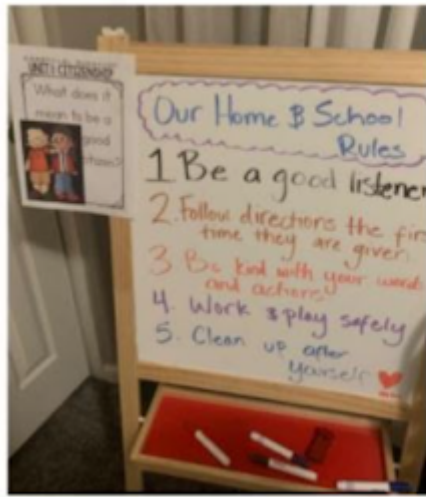 UNIT 1 CITIZENSHIP
What does it
mean to be a
good
Our Home & School
Rules
1 Be a good listener
2. Follow directions the firs
time they are given
3 Be kind with your words
and actions
4. Work & play safely
5. Clean up after
yourself